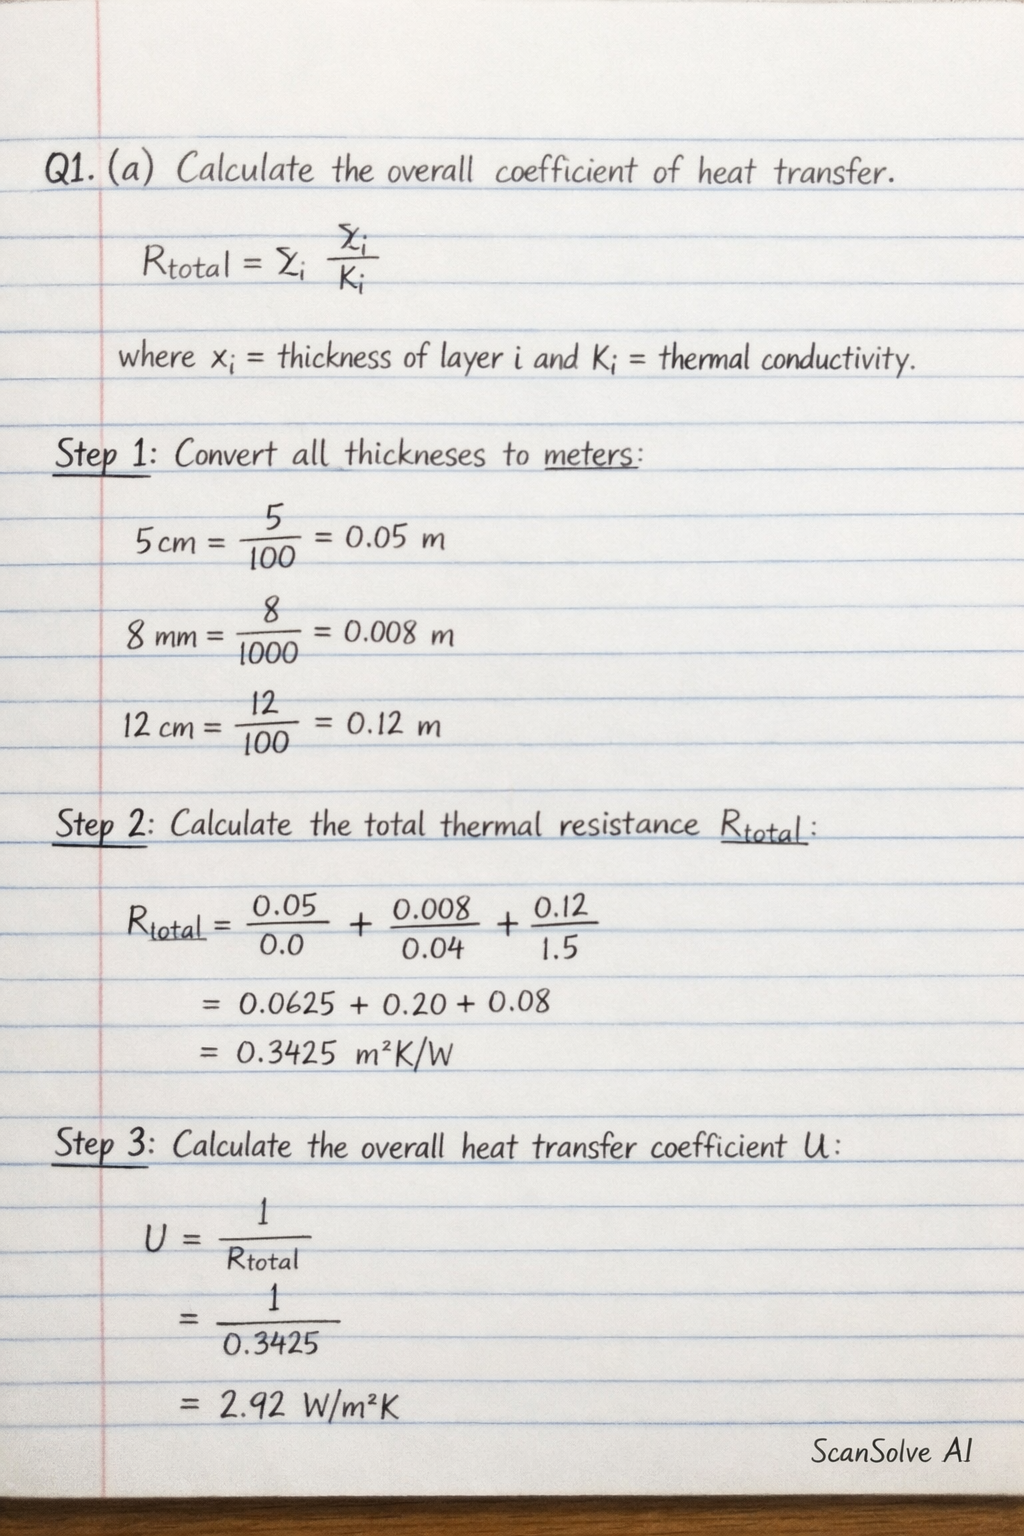 Q1. (a) Calculate the overall coefficient of heat transfer.
Rtotal = Σi Σi/Ki
where xi = thickness of layer i and Ki = thermal conductivity.
Step 1: Convert all thickneses to meters:
5 cm = 5/100 = 0.05 m
8 mm = 8/1000 = 0.008 m
12 cm = 12/100 = 0.12 m
Step 2: Calculate the total thermal resistance Rtotal:
Rtotal = 0.05/0.0 + 0.008/0.04 + 0.12/1.5
= 0.0625 + 0.20 + 0.08
= 0.3425 m²K/W
Step 3: Calculate the overall heat transfer coefficient U:
U = 1/Rtotal
= 1/0.3425
= 2.92 W/m²K
ScanSolve AI